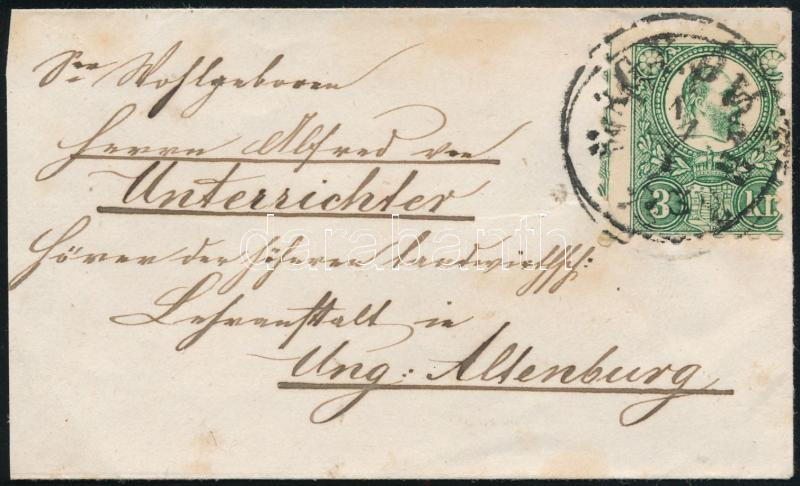 Sr Wohlgeboren
Herrn Alfred von
Unterrichter
Hörer der höheren landwirthsch:
Lehranstalt in
Ung: Altenburg
3 kr
darabanth